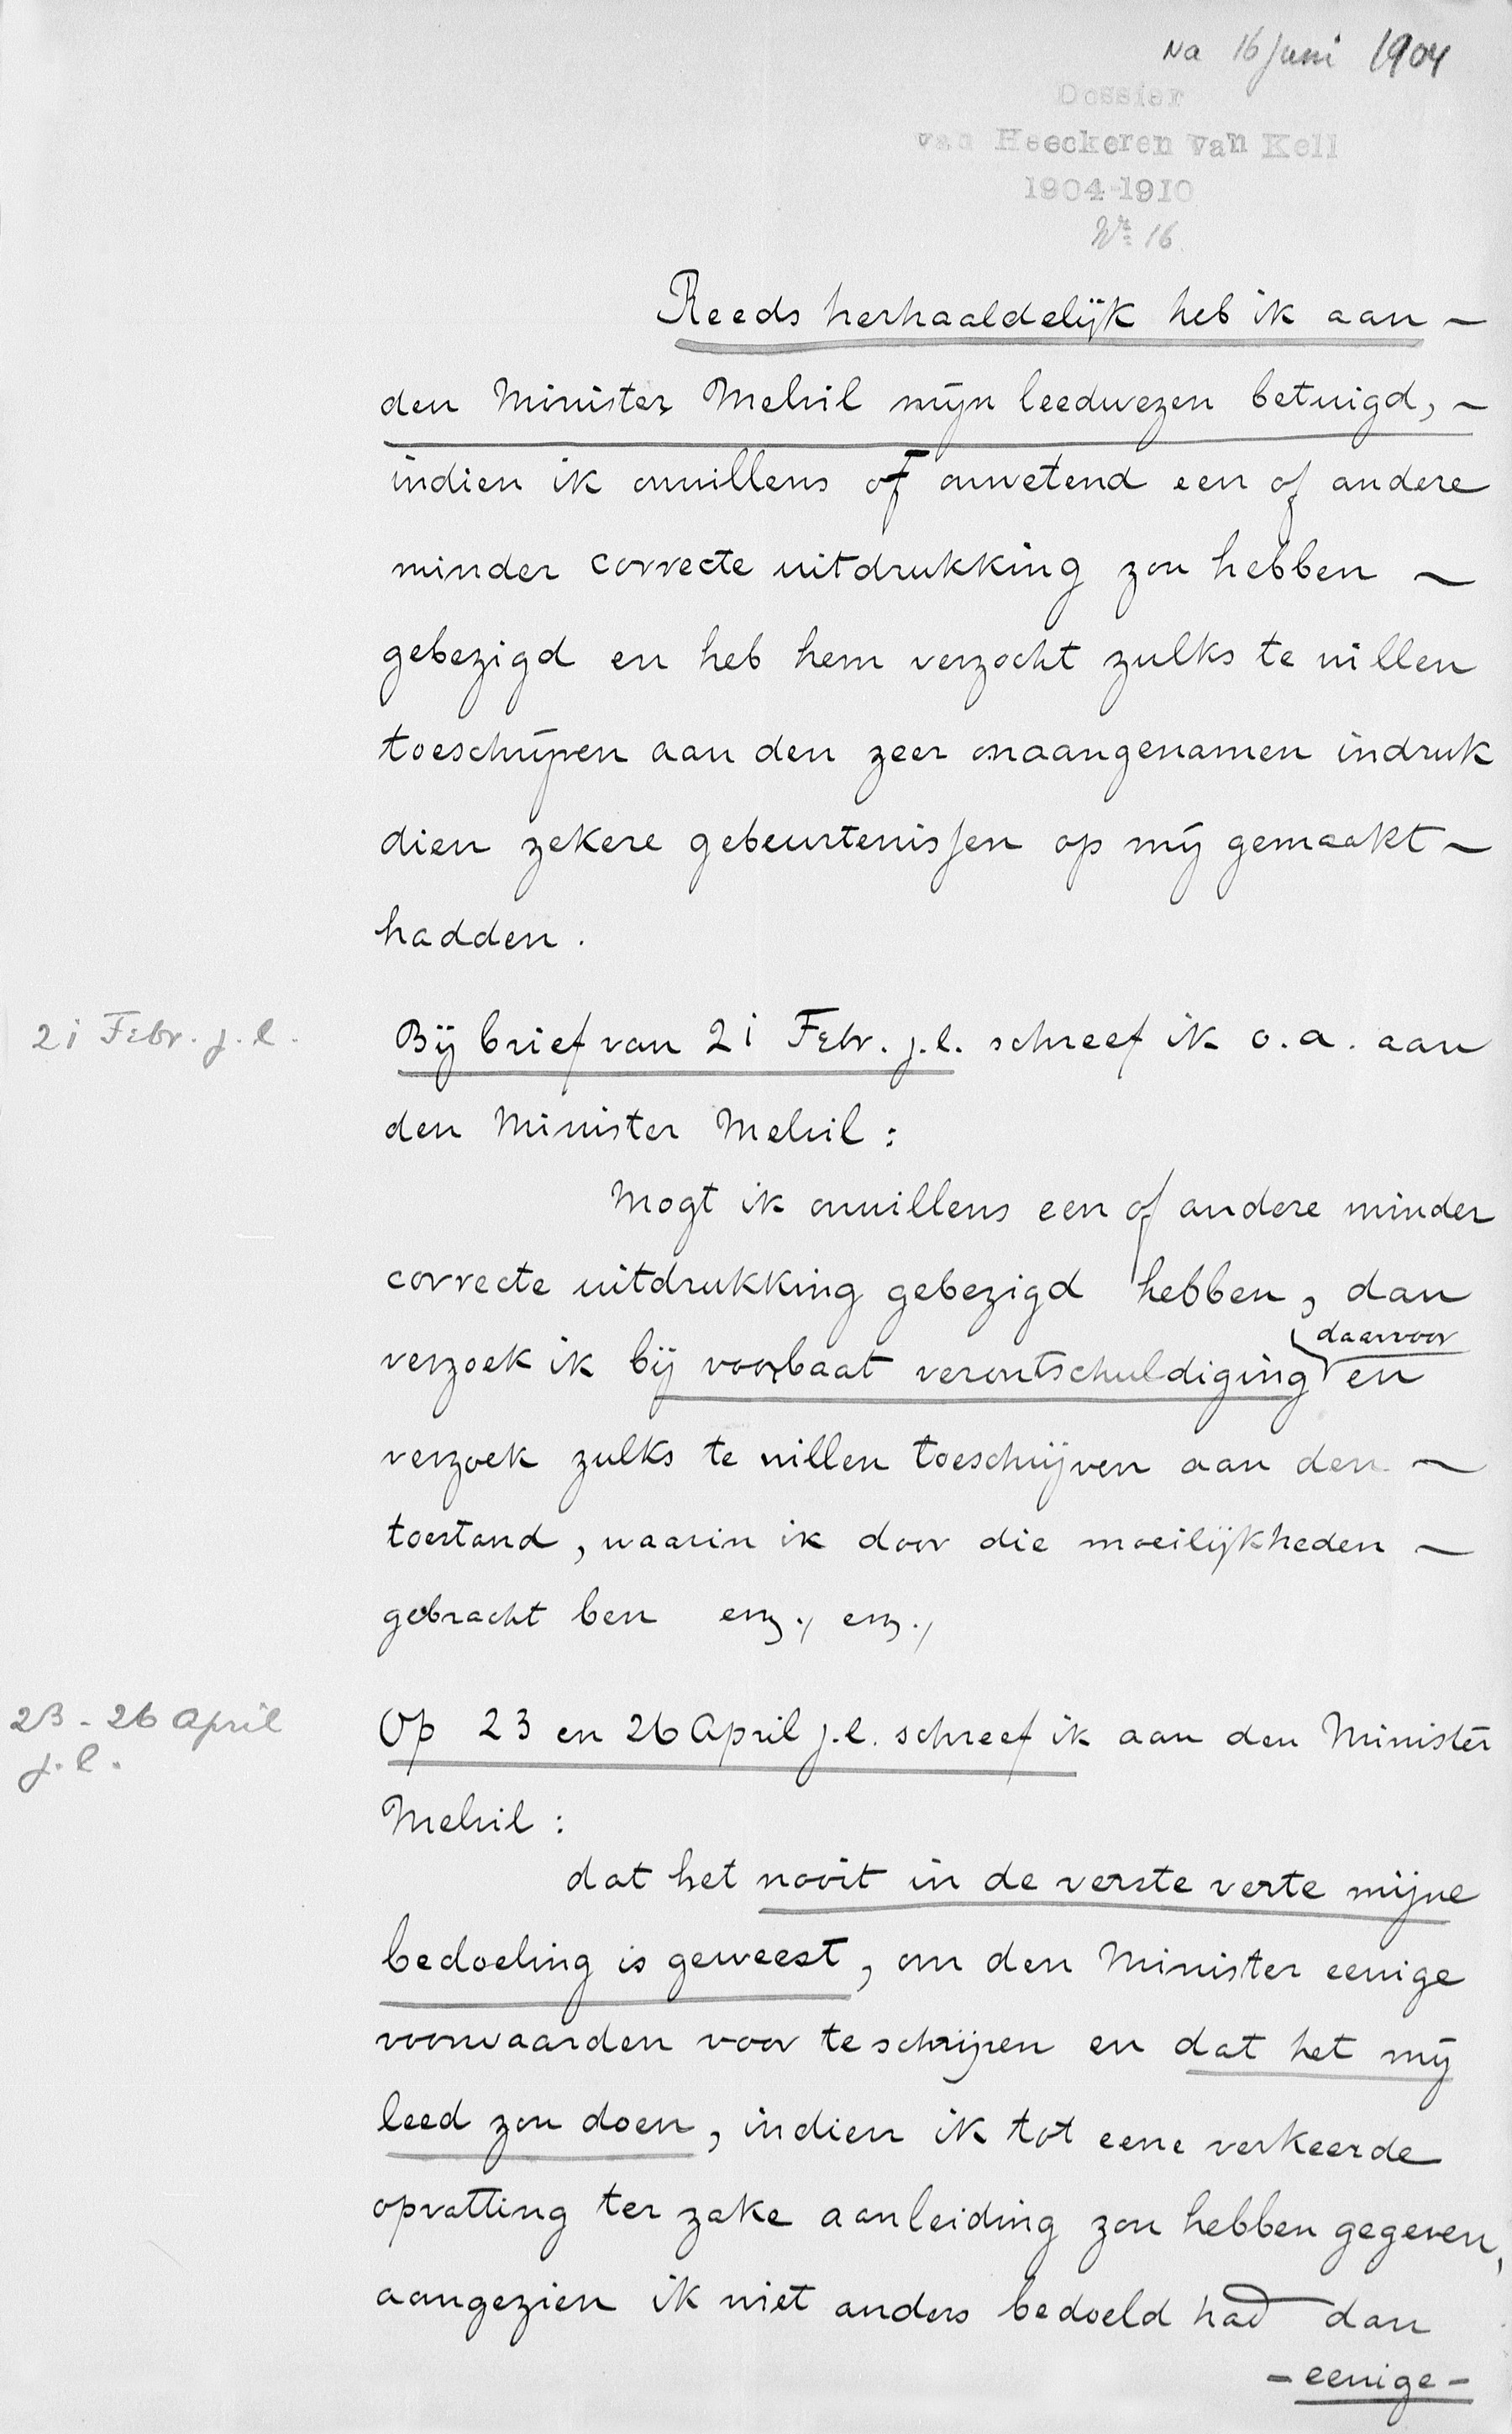 Na 16 Juni 1904
Dossier
van Heeckeren van Kell
1904-1910
No 16.
Reeds herhaaldelijk heb ik aan –
den Minister Melvil mijn leedwezen betuigd, –
indien ik onwillens of onwetend een of andere
minder correcte uitdrukking zou hebben –
gebezigd en heb hem verzocht zulks te willen
toeschrijven aan den zeer onaangenamen indruk
dien zekere gebeurtenissen op mij gemaakt –
hadden.
21 Febr. j.l.
Bij brief van 21 Febr. j.l. schreef ik o.a. aan
den Minister Melvil:
Mogt ik onwillens een of andere minder
correcte uitdrukking gebezigd hebben, dan
verzoek ik bij voorbaat verontschuldiging daarvoor en
verzoek zulks te willen toeschrijven aan den –
toestand, waarin ik door die moeilijkheden –
gebracht ben enz., enz.,
23-26 April
j.l.
Op 23 en 26 April j.l. schreef ik aan den Minister
Melvil:
dat het nooit in de verste verte mijne
bedoeling is geweest, om den Minister eenige
voorwaarden voor te schrijven en dat het mij
leed zou doen, indien ik tot eene verkeerde
opvatting ter zake aanleiding zou hebben gegeven,
aangezien ik niet anders bedoeld had dan
- eenige -